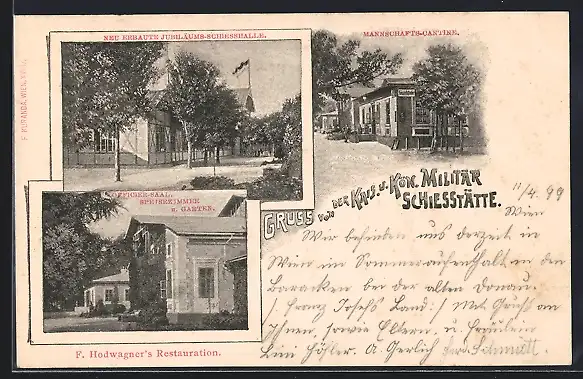 NEU ERBAUTE JUBILÄUMS-SCHIESSHALLE.
MANNSCHAFTS-CANTINE.
F. DURANDA, WIEN, XVIII/1
OFFICIER-SAAL,
SPEISEZIMMER
U. GARTEN.
GRUSS VON DER KAIS. U. KÖN. MILITÄR
SCHIESSTÄTTE.
F. Hodwagner's Restauration.
11/4. 99
Wien
Wir befinden uns derzeit in
Wien im Sommeraufenthalt in den
Baracken bei der alten Donau.
/: Franz Josefs Land :/ Mit Gruß an
Ihnen, sowie Eltern, u. Fräulein
Lini Höfler. A. Gerlich Schmidt.